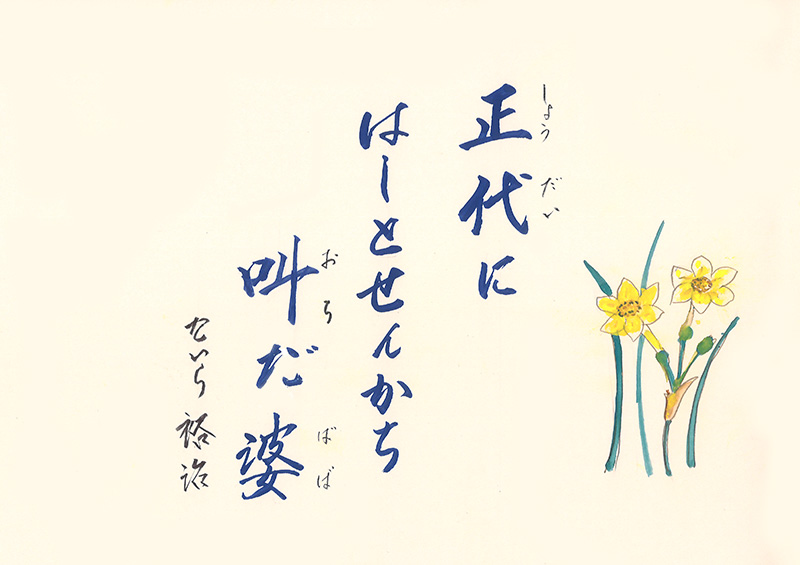 しょうだい
正代に
はしとせんかち
おら ばば
叫だ婆
たいら裕治